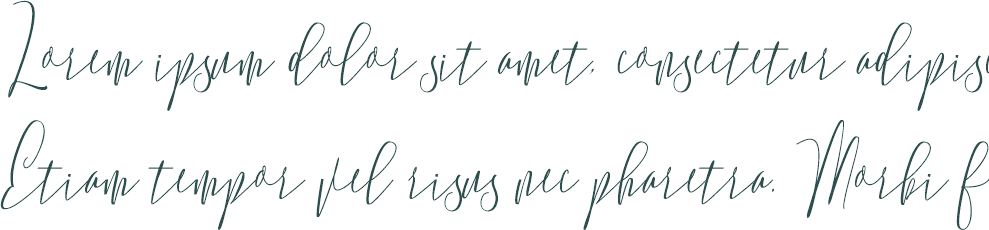 Lorem ipsum dolor sit amet, consectetur adipisc
Etiam tempor vel risus nec pharetra. Morbi f